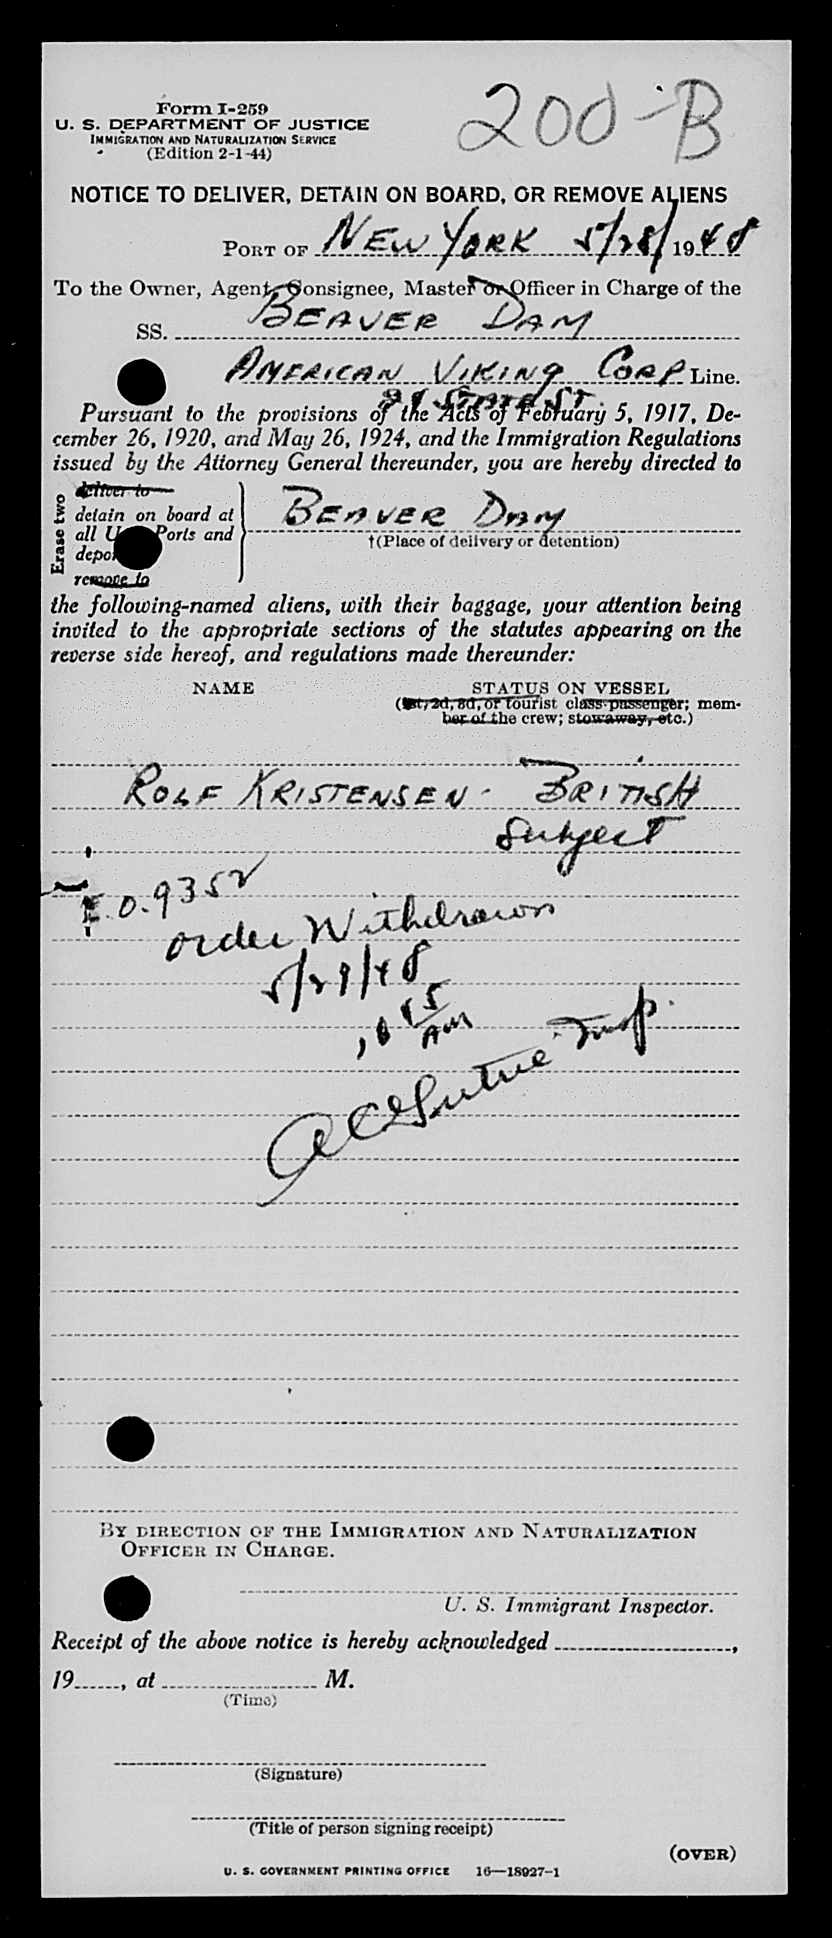 Form I-259
200-B
U. S. DEPARTMENT OF JUSTICE
IMMIGRATION AND NATURALIZATION SERVICE
(Edition 2-1-44)
NOTICE TO DELIVER, DETAIN ON BOARD, OR REMOVE ALIENS
PORT OF NEW YORK 5/28/1948
To the Owner, Agent, Consignee, Master or Officer in Charge of the
SS. BEAVER DAM
AMERICAN VIKING CORP Line.
STATE ST.
Pursuant to the provisions of the Acts of February 5, 1917, De-
cember 26, 1920, and May 26, 1924, and the Immigration Regulations
issued by the Attorney General thereunder, you are hereby directed to
Erase two
deliver to
detain on board at
all U Ports and
depo
remove to
BEAVER DAM
†(Place of delivery or detention)
the following-named aliens, with their baggage, your attention being
invited to the appropriate sections of the statutes appearing on the
reverse side hereof, and regulations made thereunder:
NAME STATUS ON VESSEL
(1st, 2d, 3d, or tourist class passenger; mem-
ber of the crew; stowaway, etc.)
ROLF KRISTENSEN - BRITISH
Subject
0.9352
order Withdrawn
5/29/48
AM
Insp.
BY DIRECTION OF THE IMMIGRATION AND NATURALIZATION
OFFICER IN CHARGE.
U. S. Immigrant Inspector.
Receipt of the above notice is hereby acknowledged ,
19 , at M.
(Time)
(Signature)
(Title of person signing receipt)
(OVER)
U. S. GOVERNMENT PRINTING OFFICE 16—18927-1